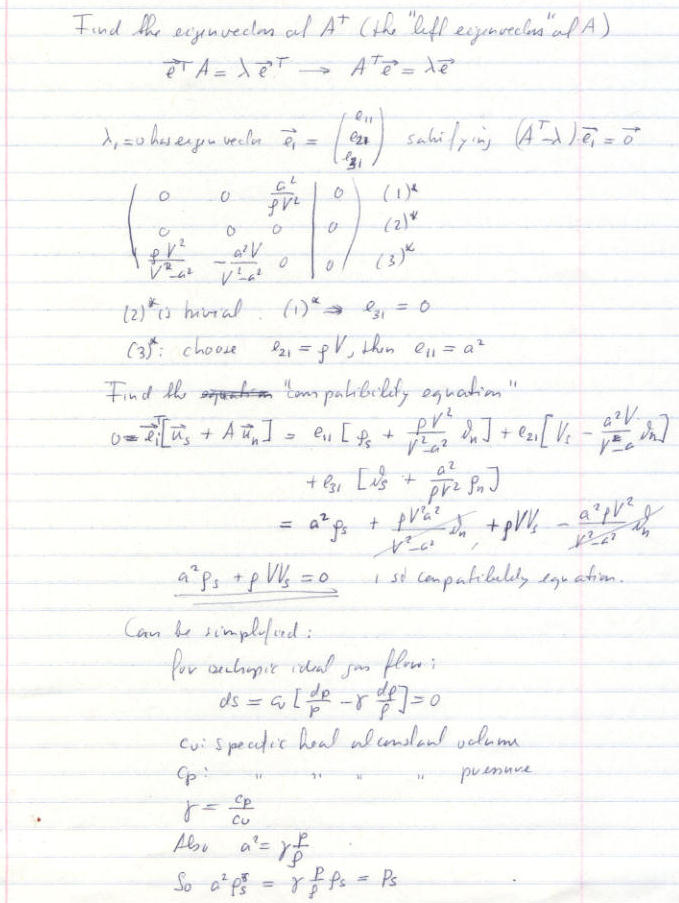 Find the eigenvectors of Aᵀ (the "left eigenvectors" of A)
e⃗ᵀ A = λ e⃗ᵀ → Aᵀe⃗ = λe⃗
λ₁=0 has eigen vector e⃗₁ = (e₁₁ e₂₁ e₃₁) satisfying (Aᵀ-λ)e⃗₁ = 0⃗
( 0 0 a²/ρV² | 0 ) (1)*
0 0 0 | 0 (2)*
ρV²/V²-a² -a²V/V²-a² 0 | 0 ) (3)*
(2)* is trivial. (1)* ⇒ e₃₁ = 0
(3)*: choose e₂₁ = ρV, then e₁₁ = a²
Find the "compatibility equation"
0 = e⃗₁ᵀ[u⃗ₛ + A u⃗ₙ] = e₁₁ [ρₛ + ρV²/V²-a² ϑₙ] + e₂₁[Vₛ - a²V/V²-a ϑₙ]
+ e₃₁ [ϑₛ + a²/ρV² ρₙ]
= a²ρₛ + ρV²a²/V²-a² ϑₙ + ρVVₛ - a²ρV²/V²-a² ϑₙ
a²ρₛ + ρVVₛ = 0 1st compatibility equation.
Can be simplified:
for isentropic ideal gas flow:
ds = cᵥ [dp/p - γ dρ/ρ] = 0
cv: specific heat at constant volume
cp: " " " " pressure
γ = cp/cv
Also a² = γ p/ρ
So a²ρₛ = γ p/ρ ρₛ = pₛ